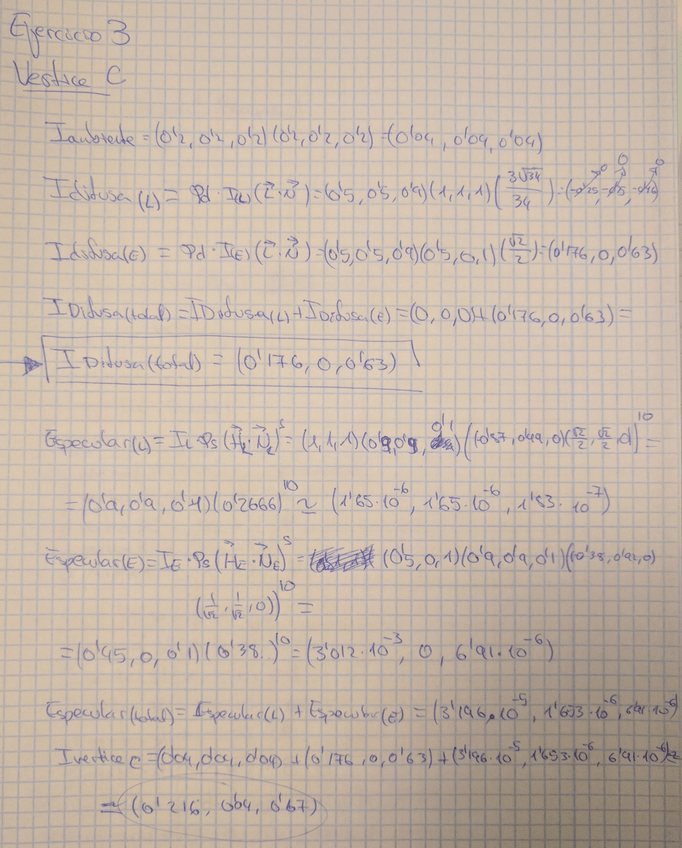 Ejercicio 3
Vertice C
Iambiente = (0'2, 0'2, 0'2)(0'2, 0'2, 0'2) = (0'04, 0'04, 0'04)
Idifusa(L) = Pd · I(L) (L⃗·N⃗) = (0'5, 0'5, 0'9)(1,1,1)(3√34/34) = 0 0 0
Idifusa(E) = Pd · I(E) (L⃗·N⃗) = (0'5, 0'5, 0'9)(0'5, 0, 1)(√2/2) = (0'176, 0, 0'63)
IDifusa(total) = IDifusa(L) + IDifusa(E) = (0,0,0) + (0'176, 0, 0'63) =
IDifusa(total) = (0'176, 0, 0'63)
Especular(L) = IL · Ps (H⃗L · N⃗L)^s = (1,1,1)(0'9, 0'9, 0'1)((0'87, 0'49, 0)(√2/2, √2/2, 0))^10 =
= (0'9, 0'9, 0'1)(0'2666)^10 ≃ (1'65·10^-6, 1'65·10^-6, 1'83·10^-7)
Especular(E) = IE · Ps (H⃗E · N⃗E)^s = (0'5, 0, 1)(0'9, 0'9, 0'1)((0'38, 0'92, 0)
(1/√2, 1/√2, 0))^10 =
= (0'45, 0, 0'1)(0'38..)^10 = (3'012·10^-3, 0, 6'91·10^-6)
Especular(total) = Especular(L) + Especular(E) = (3'196·10^-5, 1'653·10^-6, 6'91·10^-6)
Ivertice C = (0'04, 0'04, 0'04) + (0'176, 0, 0'63) + (3'196·10^-5, 1'653·10^-6, 6'91·10^-6) =
= (0'216, 0'04, 0'67)